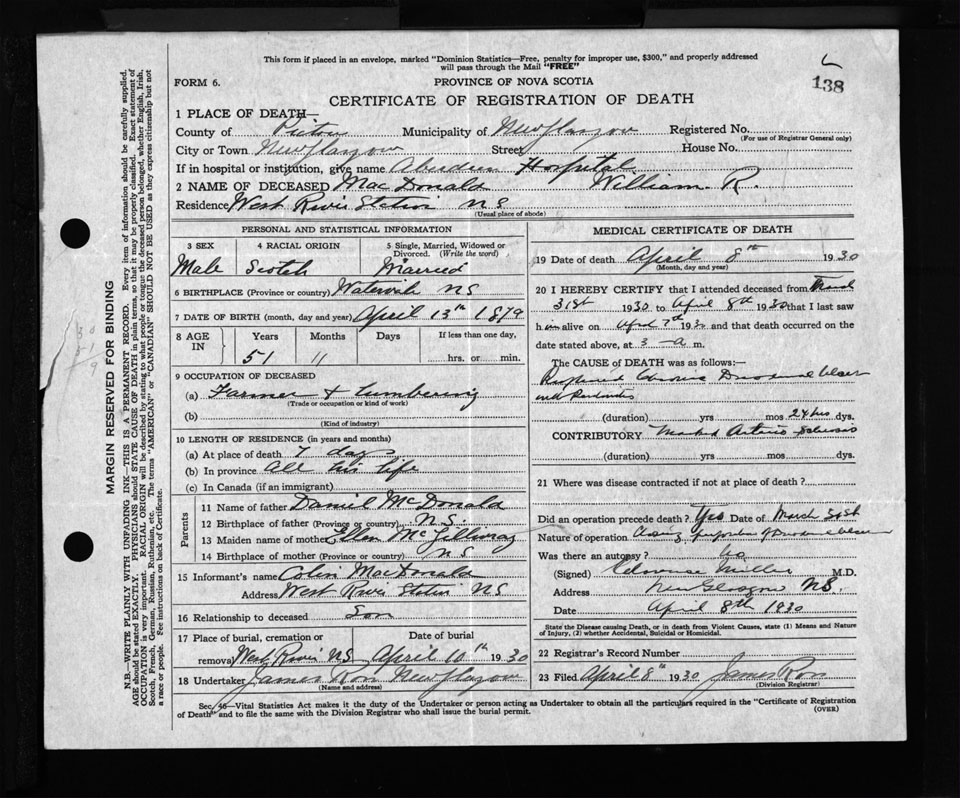 This form if placed in an envelope, marked "Dominion Statistics—Free, penalty for improper use, $300," and properly addressed
will pass through the Mail "FREE"
138
FORM 6.
PROVINCE OF NOVA SCOTIA
CERTIFICATE OF REGISTRATION OF DEATH
1 PLACE OF DEATH—
County of Pictou Municipality of New Glasgow Registered No.
(For use of Registrar General only)
City or Town New Glasgow Street House No.
If in hospital or institution, give name Aberdeen Hospital
2 NAME OF DECEASED MacDonald William R.
Residence West River Station NS
(Usual place of abode)
PERSONAL AND STATISTICAL INFORMATION
3 SEX 4 RACIAL ORIGIN 5 Single, Married, Widowed or Divorced. (Write the word)
Male Scotch Married
6 BIRTHPLACE (Province or country) NS
7 DATE OF BIRTH (month, day and year) April 13th 1879
8 AGE IN Years Months Days If less than one day,
51 11 hrs. or min.
9 OCCUPATION OF DECEASED
(a) Farmer & lumbering
(Trade or occupation or kind of work)
(b)
(Kind of industry)
10 LENGTH OF RESIDENCE (in years and months)
(a) At place of death 7 days
(b) In province all his life
(c) In Canada (if an immigrant)
Parents
11 Name of father Daniel McDonald
12 Birthplace of father (Province or country) N.S.
13 Maiden name of mother Ellen McGillivray
14 Birthplace of mother (Province or country) NS
15 Informant's name Colin MacDonald
Address West River Station NS
16 Relationship to deceased Son
17 Place of burial, cremation or removal Date of burial
West River N.S. April 10th 1930
18 Undertaker James Ross New Glasgow
(Name and address)
MEDICAL CERTIFICATE OF DEATH
19 Date of death April 8th 1930
(Month, day and year)
20 I HEREBY CERTIFY that I attended deceased from March
31st 1930 to April 8th 1930 that I last saw
him alive on April 7th 1930 and that death occurred on the
date stated above, at 3 a m.
The CAUSE OF DEATH was as follows:—
Ruptured Chronic Duodenal Ulcer
with
(duration) yrs mos 24 hrs dys.
CONTRIBUTORY Marked Arterio Sclerosis
(duration) yrs mos dys.
21 Where was disease contracted if not at place of death?
Did an operation precede death? Yes Date of March 30th
Nature of operation Closing perforation of Duodenal ulcer
Was there an autopsy? No
(Signed) Miller M.D.
Address New Glasgow NS.
Date April 8th 1930
State the Disease causing Death, or in death from Violent Causes, state (1) Means and Nature
of Injury, (2) whether Accidental, Suicidal or Homicidal.
22 Registrar's Record Number
23 Filed April 8th 1930 James Ross
(Division Registrar)
Sec. 46—Vital Statistics Act makes it the duty of the Undertaker or person acting as Undertaker to obtain all the particulars required in the "Certificate of Registration
of Death" and to file the same with the Division Registrar who shall issue the burial permit. (OVER)
MARGIN RESERVED FOR BINDING
N.B.—WRITE PLAINLY WITH UNFADING INK—THIS IS A PERMANENT RECORD. Every item of information should be carefully supplied.
AGE should be stated EXACTLY. PHYSICIANS should STATE CAUSE OF DEATH in plain terms, so that it may be properly classified. Exact statement of
OCCUPATION is very important. RACIAL ORIGIN will be described by stating to what people or tongue the deceased person belonged, whether English, Irish,
Scotch, French, German, Russian, Ruthenian, etc. The terms "AMERICAN" or "CANADIAN" SHOULD NOT BE USED as they express citizenship but not
a race or people. See instructions on back of Certificate.